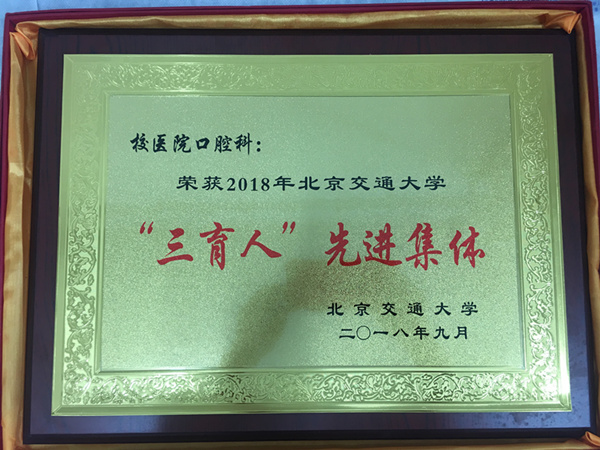 校医院口腔科：
荣获2018年北京交通大学
“三育人”先进集体
北京交通大学
二〇一八年九月